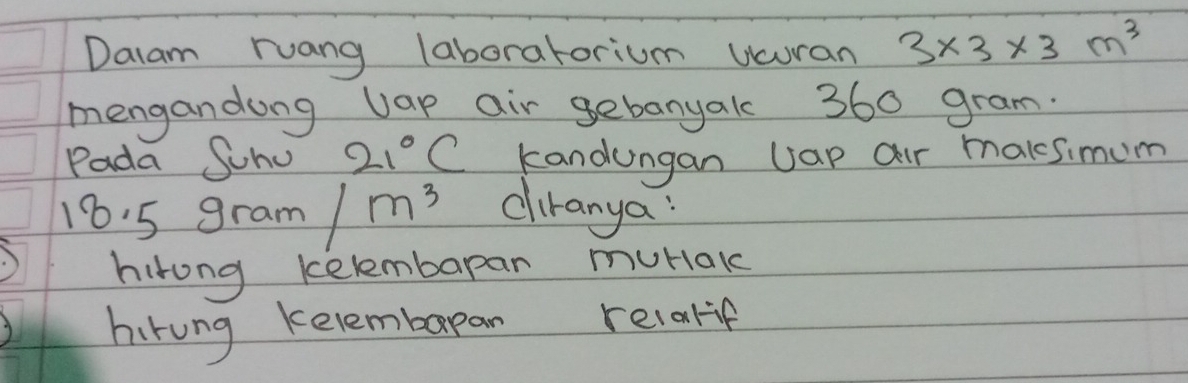 Dalam ruang laboratorium ukuran 3x3x3 m³
mengandung Uap air sebanyak 360 gram.
Pada Suhu 21°C kandungan Uap air maksimum
18.5 gram / m³ ditanya:
hitung kelembapan mutlak
hitung kelembapan relatif